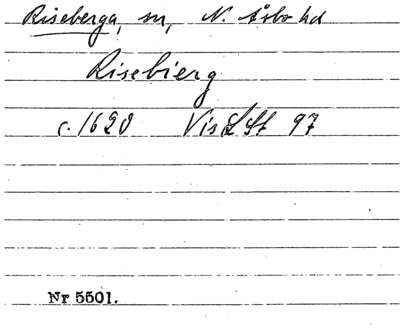 Riseberga, sn, N. Åsbo hd
Risebierg
c. 1620 Vis L St 97
Nr 5501.